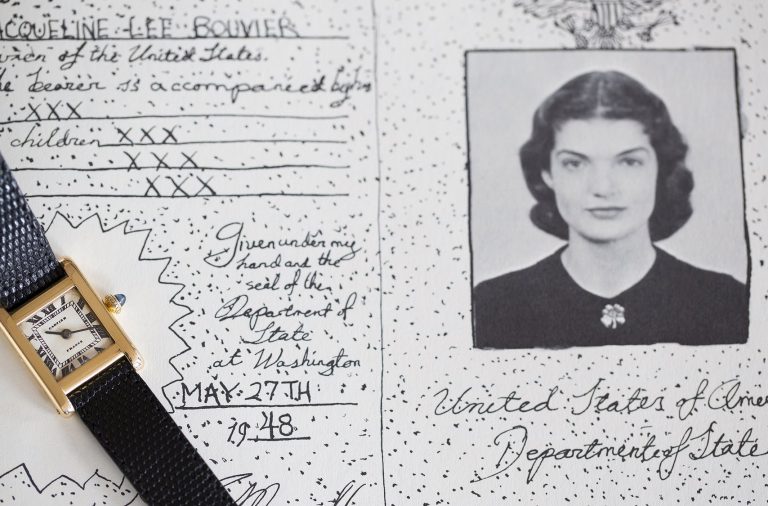 ACQUELINE LEE BOUVIER
of the United States.
bearer is accompanied by
XXX
children XXX
XXX
XXX
Given under my
hand and the
seal of the
Department of
State
at Washington
MAY 27TH
19 48
CARTIER
United States of Amer
Department of State